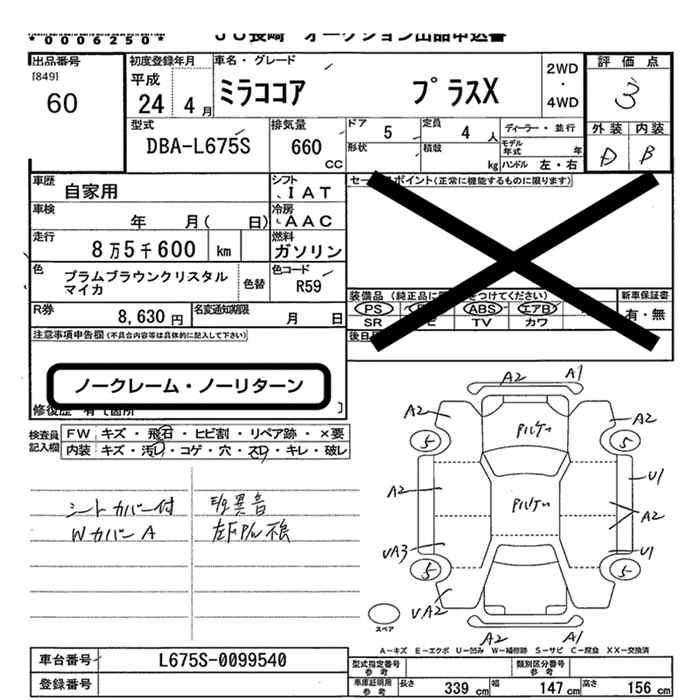 *0006250* JU長崎 オークション出品申込書
出品番号 初度登録年月 車名・グレード 評価点
[849] 60 平成 24年 4月 ミラココア プラスX 2WD・4WD 3
型式 排気量 ドア 5 定員 4人 ディーラー・並行 外装 内装
DBA-L675S 660 CC 形状 積載 kg モデル年式 年 D B
ハンドル 左・右
車歴 自家用 シフト IAT セールスポイント(正常に機能するものに限ります)
車検 年 月( 日) 冷房 AAC
走行 8万5千600 km 燃料 ガソリン
色 プラムブラウンクリスタルマイカ 色替 色コード R59
装備品(純正品に をつけてください) 新車保証書
PS ABS エアB 有・無
SR TV カワ
R券 8,630円 名変通知期限 月 日
後日
注意事項申告欄(不具合内容等は具体的に記入して下さい)
ノークレーム・ノーリターン
修復歴 有 箇所
検査員記入欄 FW キズ・飛石・ヒビ割・リペア跡・×要
内装 キズ・汚レ・コゲ・穴・スレ・キレ・破レ
シートカバー付 異音
WカバーA 左F
A2 A1
A2 A2
5 5
U1
A2 A2
UA3 U1
5 5
UA2
A2 A1
スペア
A-キズ E-エクボ U-凹み W-補修跡 S-サビ C-腐食 XX-交換済
車台番号 L675S-0099540
型式指定番号 参考 類別区分番号 参考
登録番号
車庫証明用 参考 長さ 339 cm 幅 147 cm 高さ 156 cm